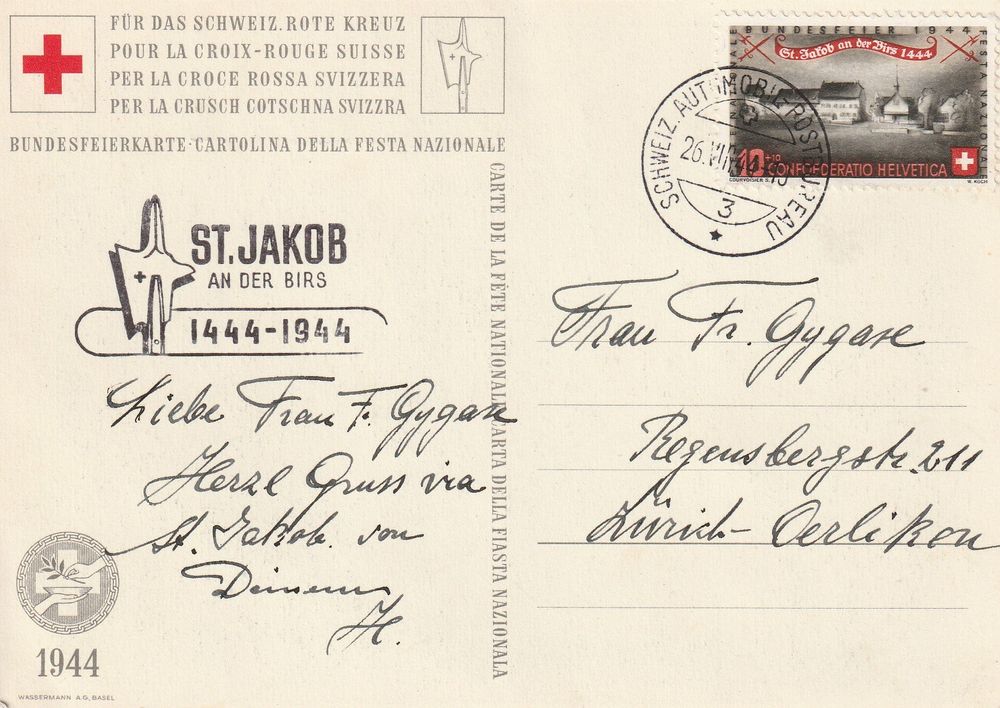 FÜR DAS SCHWEIZ. ROTE KREUZ
POUR LA CROIX-ROUGE SUISSE
PER LA CROCE ROSSA SVIZZERA
PER LA CRUSCH COTSCHNA SVIZZRA
BUNDESFEIERKARTE·CARTOLINA DELLA FESTA NAZIONALE
CARTE DE LA FÊTE NATIONALE·CARTA DELLA FIASTA NAZIONALA
ST. JAKOB
AN DER BIRS
1444-1944
Liebe Frau F. Gygase
Herzl Gruss via
St. Jakob. von
Deinem
H.
1944
WASSERMANN A.G. BASEL
BUNDESFEIER 1944
FESTA NAZIONALE
St. Jakob an der Birs 1444
10+10
CONFOEDERATIO HELVETICA
COURVOISIER S.A.
W. KOCH
SCHWEIZ. AUTOMOBIL-POSTBUREAU
26.VIII.44
3
Frau Fr. Gygase
Regensbergstr. 211
Zürich-Oerlikon